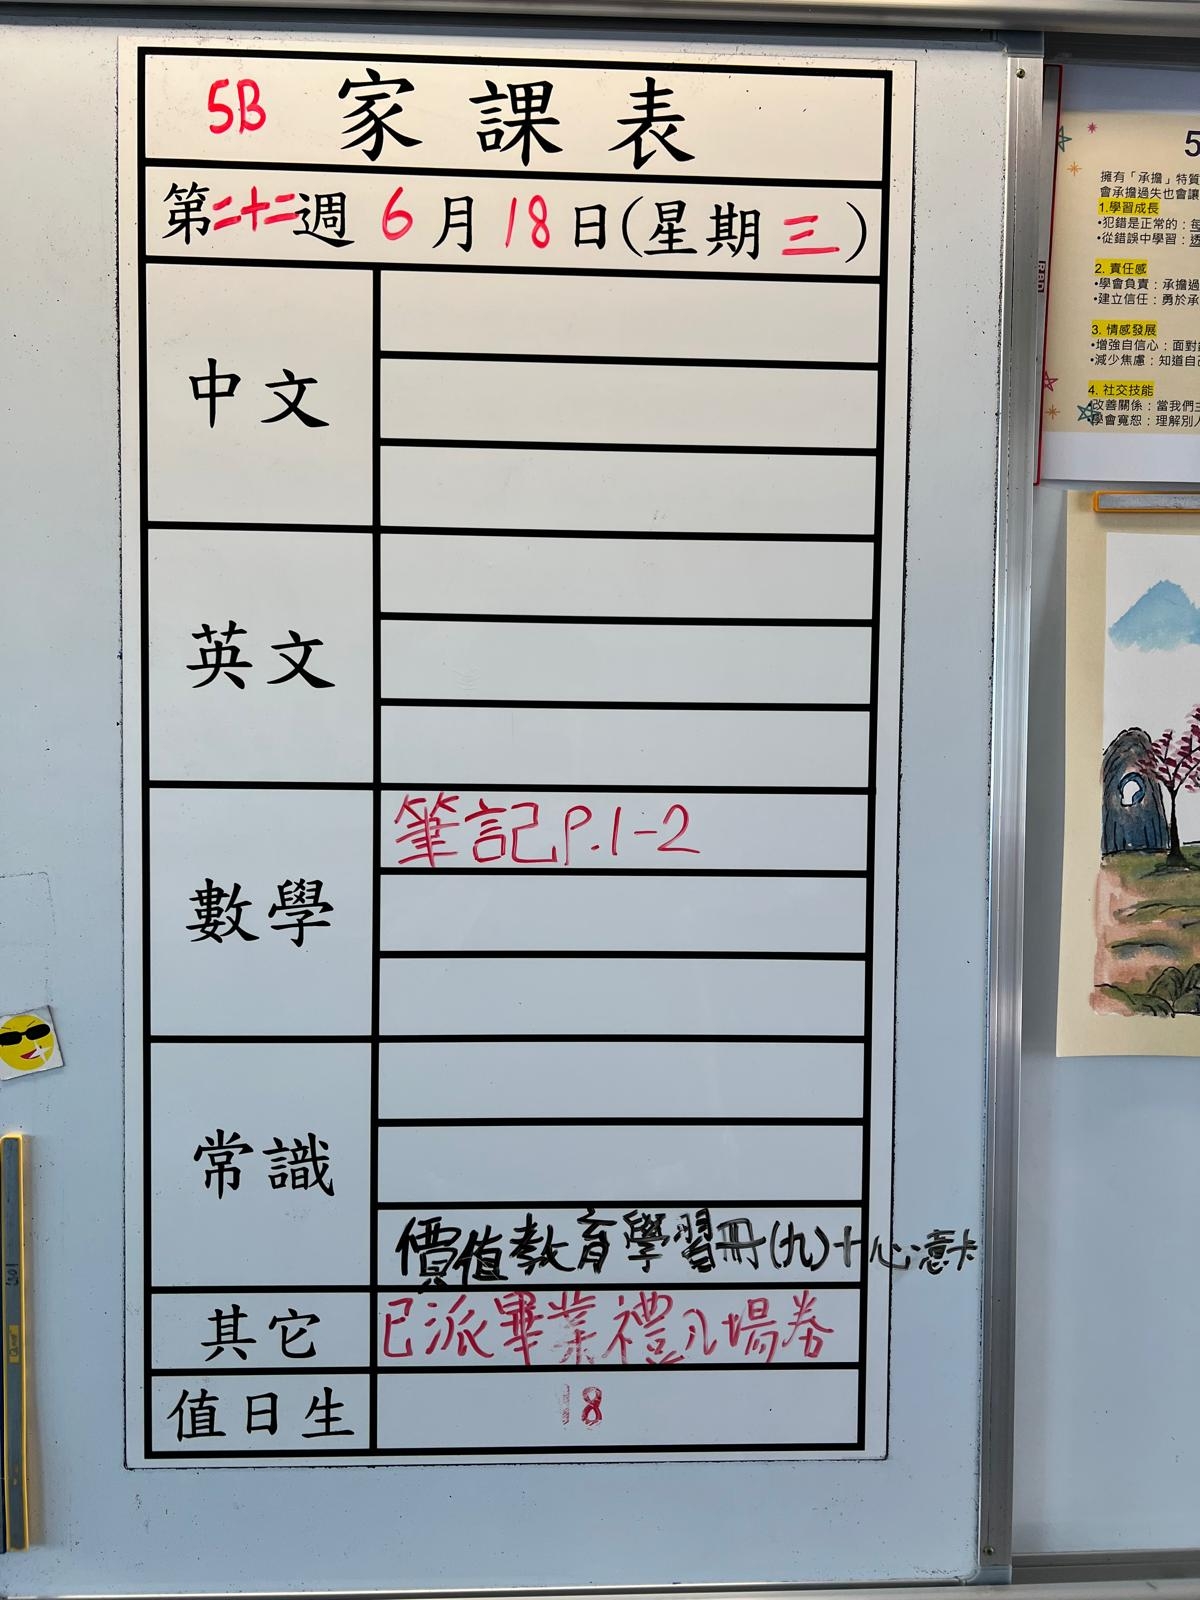 5B 家課表
第二十二週 6月18日(星期三)
中文
英文
數學
筆記P.1-2
常識
價值教育學習冊(九)+心意卡
其它
已派畢業禮入場券
值日生
18
5
擁有「承擔」特質
會承擔過失也會讓
1.學習成長
•犯錯是正常的：每
•從錯誤中學習：透
2. 責任感
•學會負責：承擔過
•建立信任：勇於承
3. 情感發展
•增強自信心：面對
•減少焦慮：知道自己
4. 社交技能
改善關係：當我們
學會寬恕：理解別人